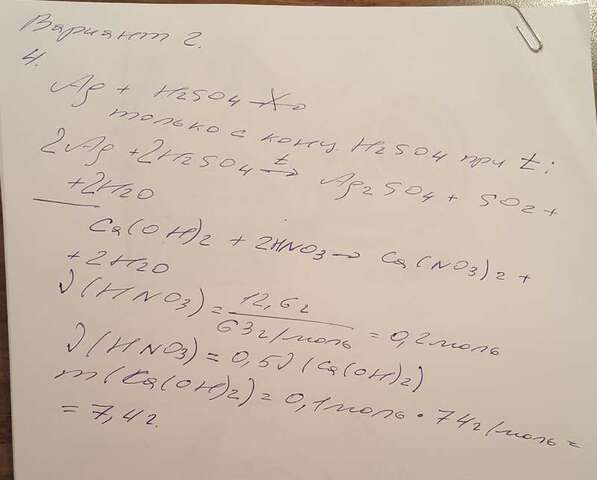 Вариант 2.
4.
Ag + H2SO4 -X->
только с конц. H2SO4 при t:
2Ag + 2H2SO4 t→ Ag2SO4 + SO2 +
+2H2O
Ca(OH)2 + 2HNO3 → Ca(NO3)2 +
+ 2H2O
ν(HNO3) = 12,6г / 63г/моль = 0,2моль
ν(HNO3) = 0,5ν(Ca(OH)2)
m(Ca(OH)2) = 0,1моль · 74г/моль =
= 7,4г.